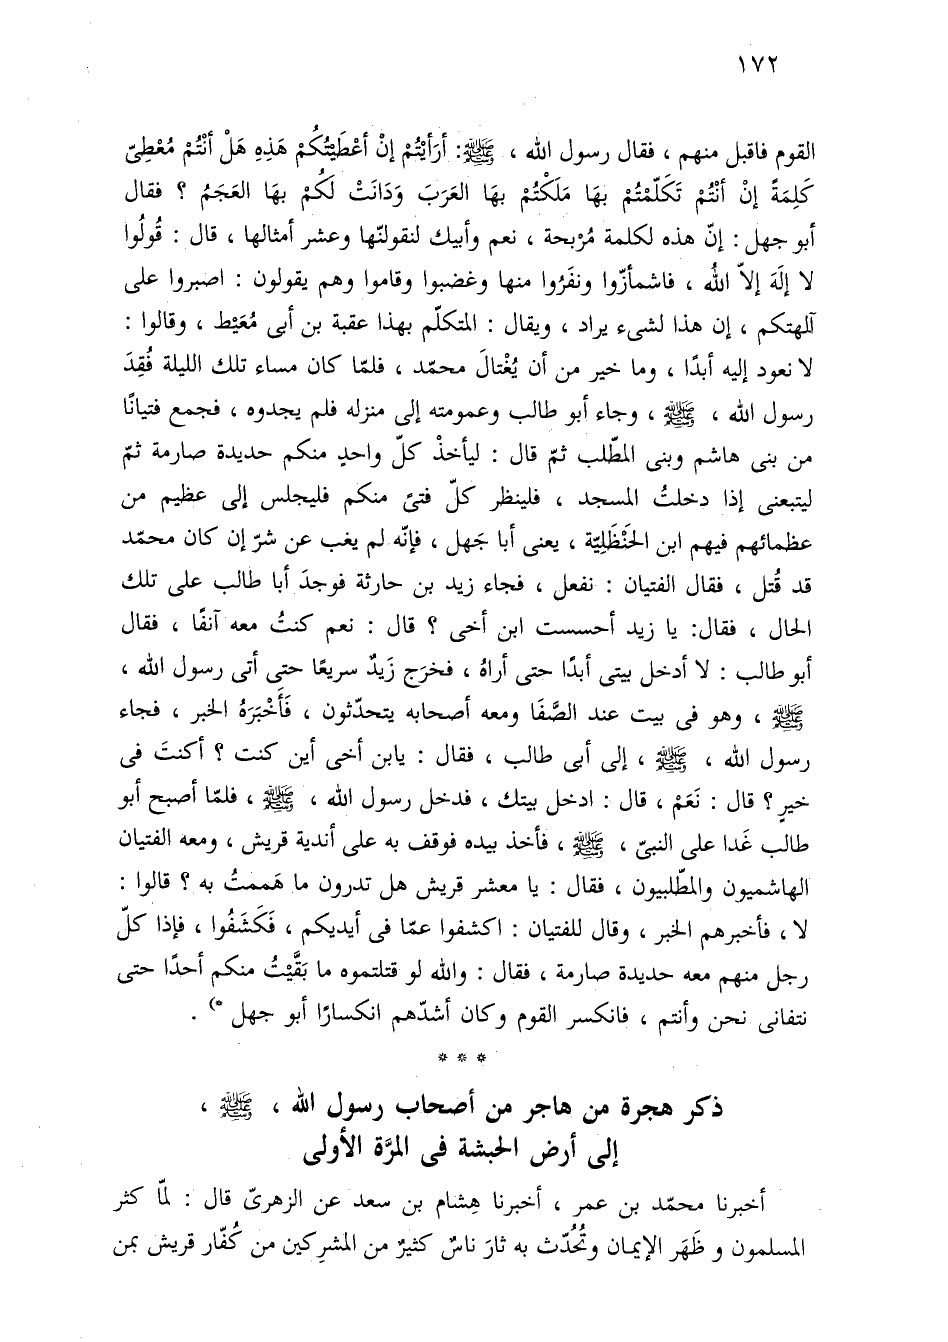 ١٧٢
القوم فاقبل منهم ، فقال رسول الله ، ﷺ: أرَأيْتُمْ إنْ أعْطَيْتُكُمْ هَذِهِ هَلْ أنْتُمْ مُعْطِيّ
كَلِمَةً إنْ أنْتُمْ تَكَلّمْتُمْ بهَا مَلَكْتُمْ بهَا العَرَبَ وَدَانَتْ لَكُمْ بهَا العَجَمُ ؟ فقال
أبو جهل : إنّ هذه لكلمة مُرْبحة ، نعم وأبيك لنقولنّها وعشر أمثالها ، قال : قُولُوا
لا إلَهَ إلاّ اللهُ ، فاشمأزّوا ونفَرُوا منها وغضبوا وقاموا وهم يقولون : اصبروا على
آلهتكم ، إن هذا لشىء يراد ، ويقال : المتكلّم بهذا عقبة بن أبى مُعَيْط ، وقالوا :
لا نعود إليه أبدًا ، وما خير من أن يُغْتالَ محمّد ، فلمّا كان مساء تلك الليلة فُقِدَ
رسول الله ، ﷺ ، وجاء أبو طالب وعمومته إلى منزله فلم يجدوه ، فجمع فتيانًا
من بنى هاشم وبنى المطّلب ثمّ قال : ليأخذْ كلّ واحدٍ منكم حديدة صارمة ثمّ
ليتبعنى إذا دخلتُ المسجد ، فلينظر كلّ فتىً منكم فليجلس إلى عظيم من
عظمائهم فيهم ابن الحَنْظَلِيّة ، يعنى أبا جَهل ، فإنّه لم يغب عن شرّ إن كان محمّد
قد قُتل ، فقال الفتيان : نفعل ، فجاء زيد بن حارثة فوجدَ أبا طالب على تلك
الحال ، فقال: يا زيد أحسست ابن أخى ؟ قال : نعم كنتُ معه آنفًا ، فقال
أبو طالب : لا أدخل بيتى أبدًا حتى أراهُ ، فخرَج زَيدٌ سريعًا حتى أتى رسول الله ،
ﷺ ، وهو فى بيت عند الصَّفَا ومعه أصحابه يتحدّثون ، فَأَخْبَرَهُ الخبر ، فجاء
رسول الله ، ﷺ ، إلى أبى طالب ، فقال : يابن أخى أين كنت ؟ أكنتَ فى
خيرٍ ؟ قال : نَعَمْ ، قال : ادخل بيتك ، فدخل رسول الله ، ﷺ ، فلمّا أصبح أبو
طالب غَدا على النبىّ ، ﷺ ، فأخذ بيده فوقف به على أندية قريش ، ومعه الفتيان
الهاشميون والمطّلبيون ، فقال : يا معشر قريش هل تدرون ما هَممتُ به ؟ قالوا :
لا ، فأخبرهم الخبر ، وقال للفتيان : اكشفوا عمّا فى أيديكم ، فَكَشَفُوا ، فإذا كلّ
رجل منهم معه حديدة صارمة ، فقال : والله لو قتلتموه ما بَقَّيْتُ منكم أحدًا حتى
نتفانى نحن وأنتم ، فانكسر القوم وكان أشدّهم انكسارًا أبو جهل *) .
* * *
ذكر هجرة من هاجر من أصحاب رسول الله ، ﷺ ،
إلى أرض الحبشة فى المرَّة الأولى
أخبرنا محمّد بن عمر ، أخبرنا هِشام بن سعد عن الزهرىّ قال : لمّا كثر
المسلمون و ظَهَر الإيمان وتُحُدّث به ثارَ ناسٌ كثيرٌ من المشرِكين من كُفّار قريش بمن